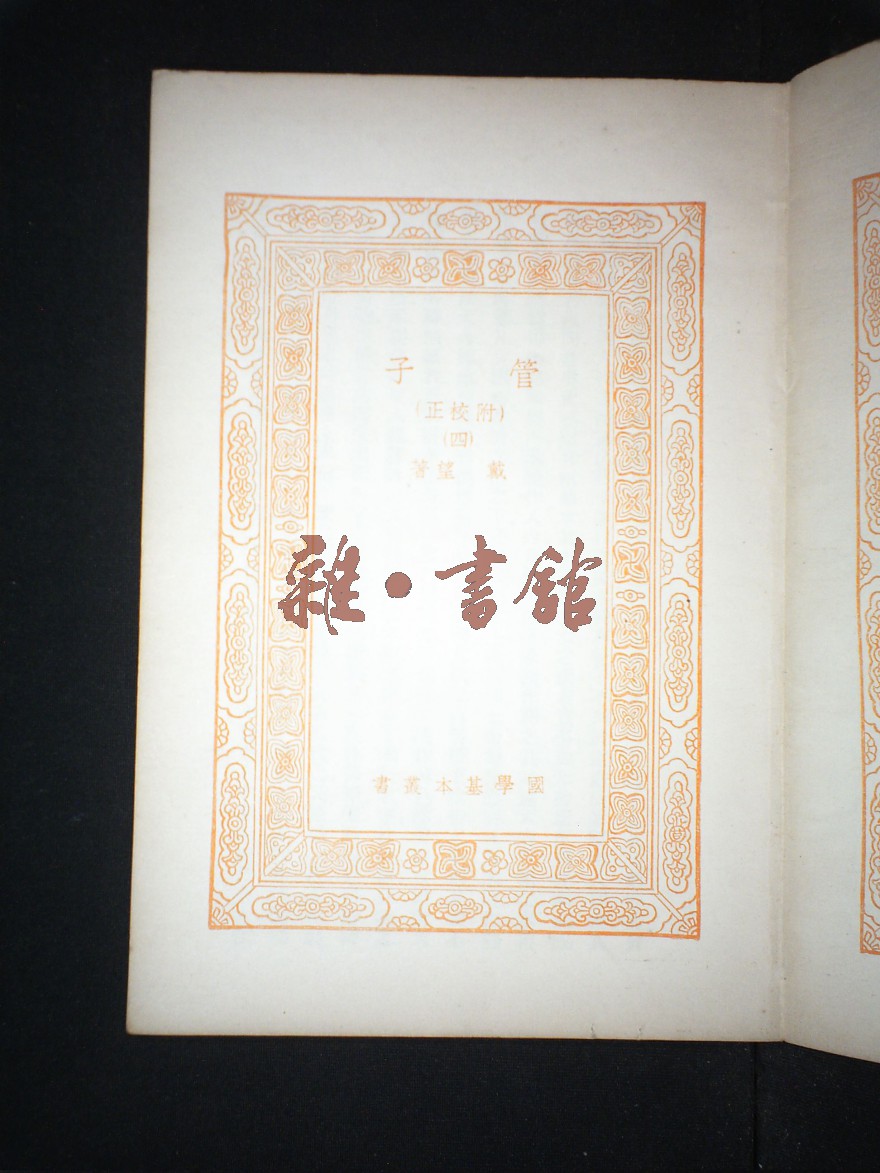 管子
(附校正)
(四)
戴望著
雜·書館
國學基本叢書